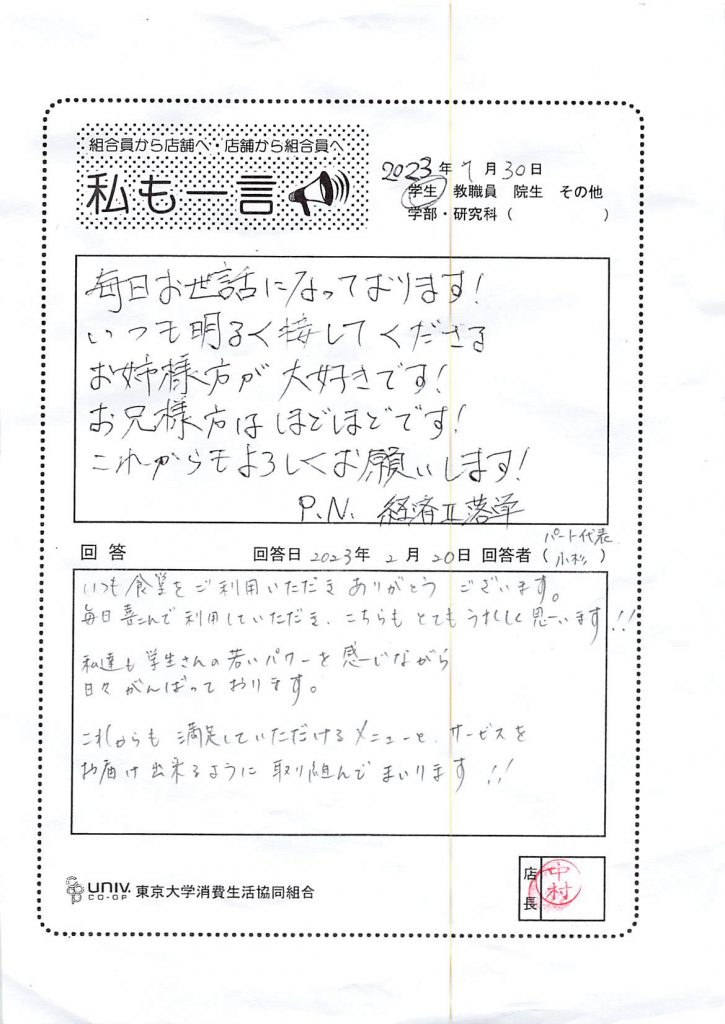 組合員から店舗へ・店舗から組合員へ
私も一言
2023年1月30日
学生 教職員 院生 その他
学部・研究科（ ）
毎日お世話になっております!
いつも明るく接してくださる
お姉様方が大好きです!
お兄様方はほどほどです!
これからもよろしくお願いします!
P.N. 経済Ⅱ落単
回答 回答日2023年2月20日 回答者（パート代表 小杉）
いつも食堂をご利用いただきありがとうございます。
毎日喜んで利用していただき、こちらもとてもうれしく思います!!
私達も学生さんの若いパワーを感じながら
日々がんばっております。
これからも満足していただけるメニューと、サービスを
お届け出来るように取り組んでまいります!!
UNIV.
CO-OP
東京大学消費生活協同組合
店長
中村